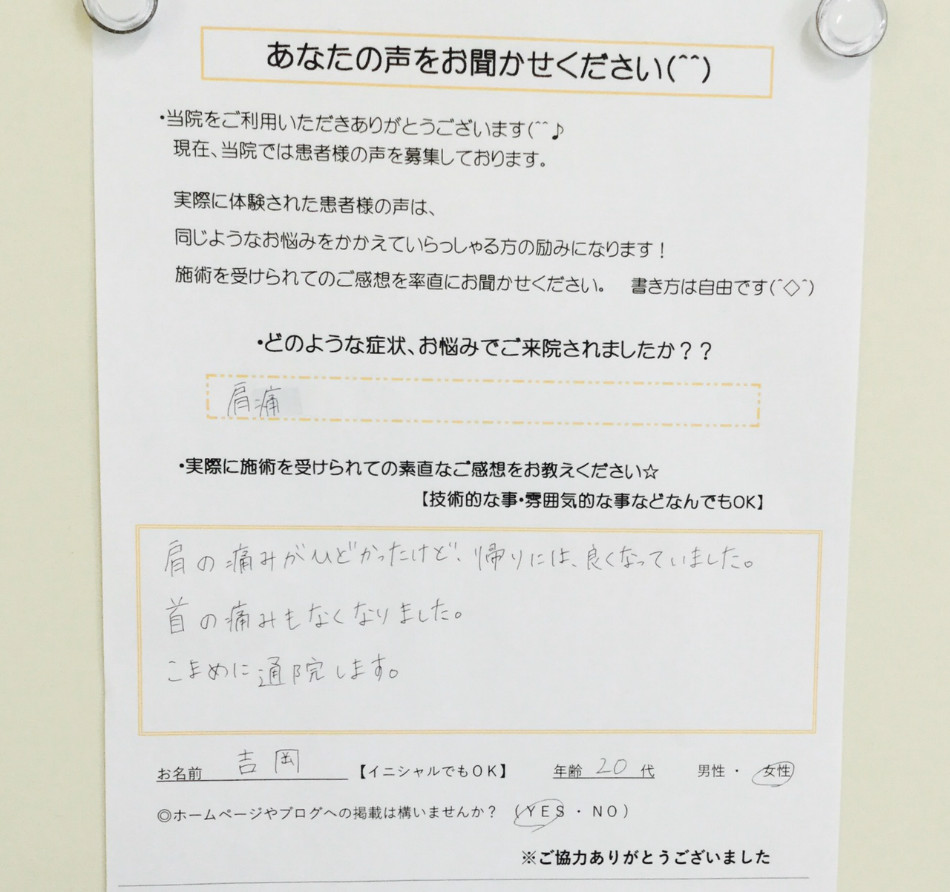 あなたの声をお聞かせください(^^)
・当院をご利用いただきありがとうございます(^^♪
現在、当院では患者様の声を募集しております。
実際に体験された患者様の声は、
同じようなお悩みをかかえていらっしゃる方の励みになります！
施術を受けられてのご感想を率直にお聞かせください。　書き方は自由です(^◇^)
・どのような症状、お悩みでご来院されましたか？？
肩痛
・実際に施術を受けられての素直なご感想をお教えください☆
【技術的な事・雰囲気的な事などなんでもOK】
肩の痛みがひどかったけど、帰りには、良くなっていました。
首の痛みもなくなりました。
こまめに通院します。
お名前　吉岡　【イニシャルでもOK】　年齢 20 代　男性・女性
◎ホームページやブログへの掲載は構いませんか？（YES・NO）
※ご協力ありがとうございました